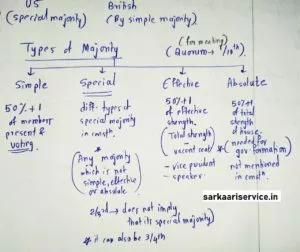 US British
(special majority) (By simple majority)
Types of Majority
(for meeting)
(Quorum → 1/10th)
Simple Special Effective Absolute
50%+1
of members
present &
voting.
diff. types of
special majority
in const.
*
(Any majority
which is not
simple, effective
or absolute
2/3rd → does not imply
that its special majority)
* it can also be 3/4th
50%+1
of effective
strength.
(Total strength)
-
vacant seat
- vice president
- speaker
50%+1
of total
strength
of house.
* (needed for
gov. formation)
not mentioned
in const.
sarkaariservice.in